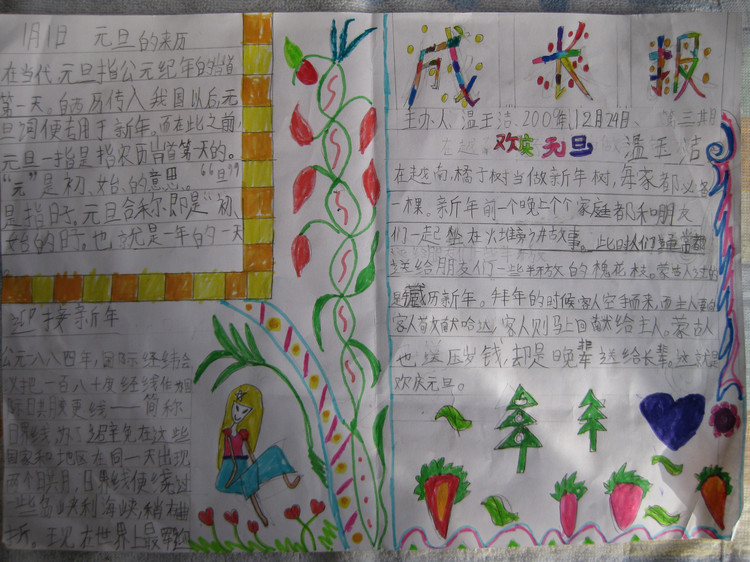 1月1日 元旦的来历
在当代元旦指公元纪年的岁首
第一天。自西历传入我国以后,元
旦一词便专用于新年。而在此之前,
元旦一指是指农历岁首第天的。
“元”是初、始,的意思。“旦”
是指日子,元旦合称即是“初、
始的日子,也就是一年的一天
迎接新年
公元一八八四年,国际经线会
议把一百八十度经线作为
际日期变更线——简称
日界线,为了避免在这些
国家和地区在同一天出现
两个日期,日界线便穿过
一些岛峡利海峡,稍大曲
折。于现在世界上最
成长报
主办人:温玉洁.2009年12月24日、第三期
欢庆元旦 温玉洁
在越南,橘子树当做新年树,每家都必备
一棵。新年前一个晚上个个家庭都和朋友
们一起坐在火堆旁讲故事。此时人们通常都
送给朋友们一些半开放的桃花枝。蒙古人过的
是藏历新年。拜年的时候客人空手而来,而主人要向
客人首次献哈达,客人则马上回献给主人。蒙古
也送压岁钱,却是晚辈送给长辈。这就是
欢庆元旦。